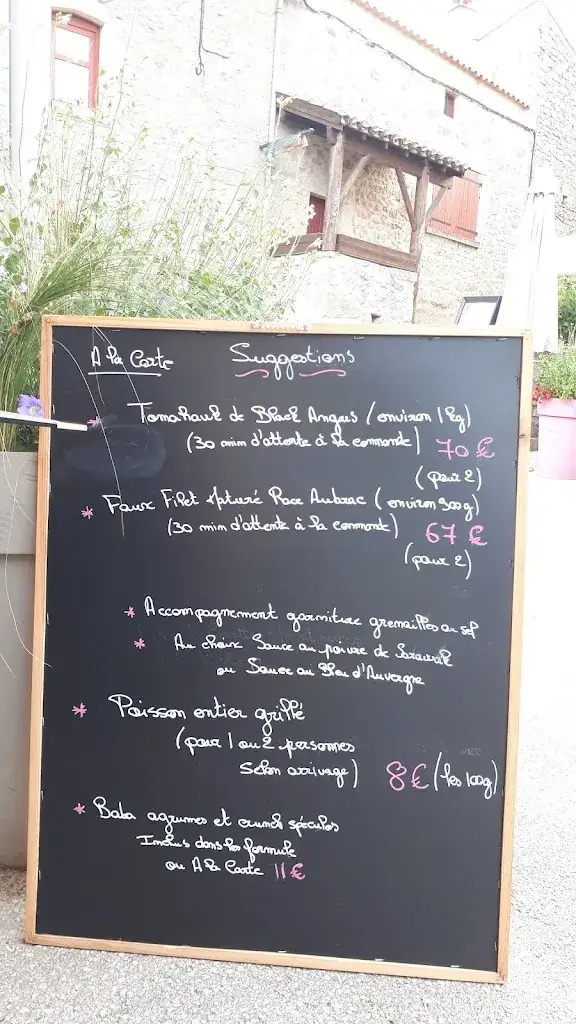 A la Carte Suggestions
* Tomahawk de Black Angus (environ 1kg)
(30 mim d'attente à la commande) 70 €
(pour 2)
* Faux Filet Race Aubrac (environ 900g)
(30 mim d'attente à la commande) 67 €
(pour 2)
* Accompagnement garniture grenailles au sel
* Au choix Sauce au poivre de Sarawak
ou Sauce au Bleu d'Auvergne
* Poisson entier grillé
(pour 1 ou 2 personnes
Selon arrivage) 8 € (les 100g)
* Baba agrumes et crunch spéculos
Inclus dans les formule
ou A la Carte 11 €